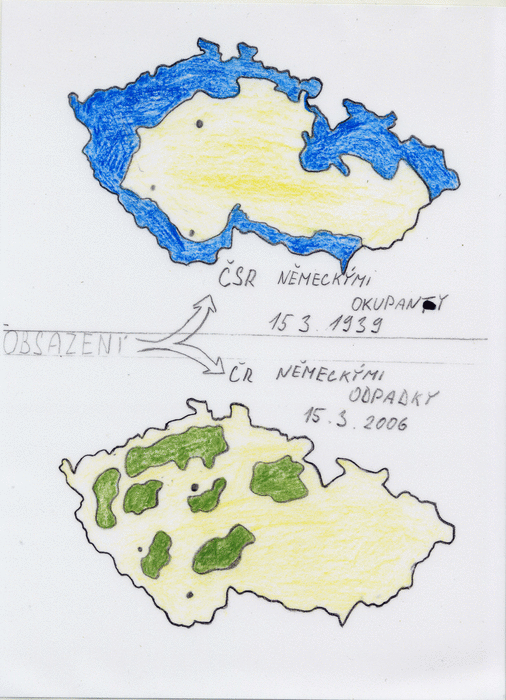 ČSR NĚMECKÝMI
OKUPANTY
15 3. 1939
OBSAZENÍ
ČR NĚMECKÝMI
ODPADKY
15.3.2006